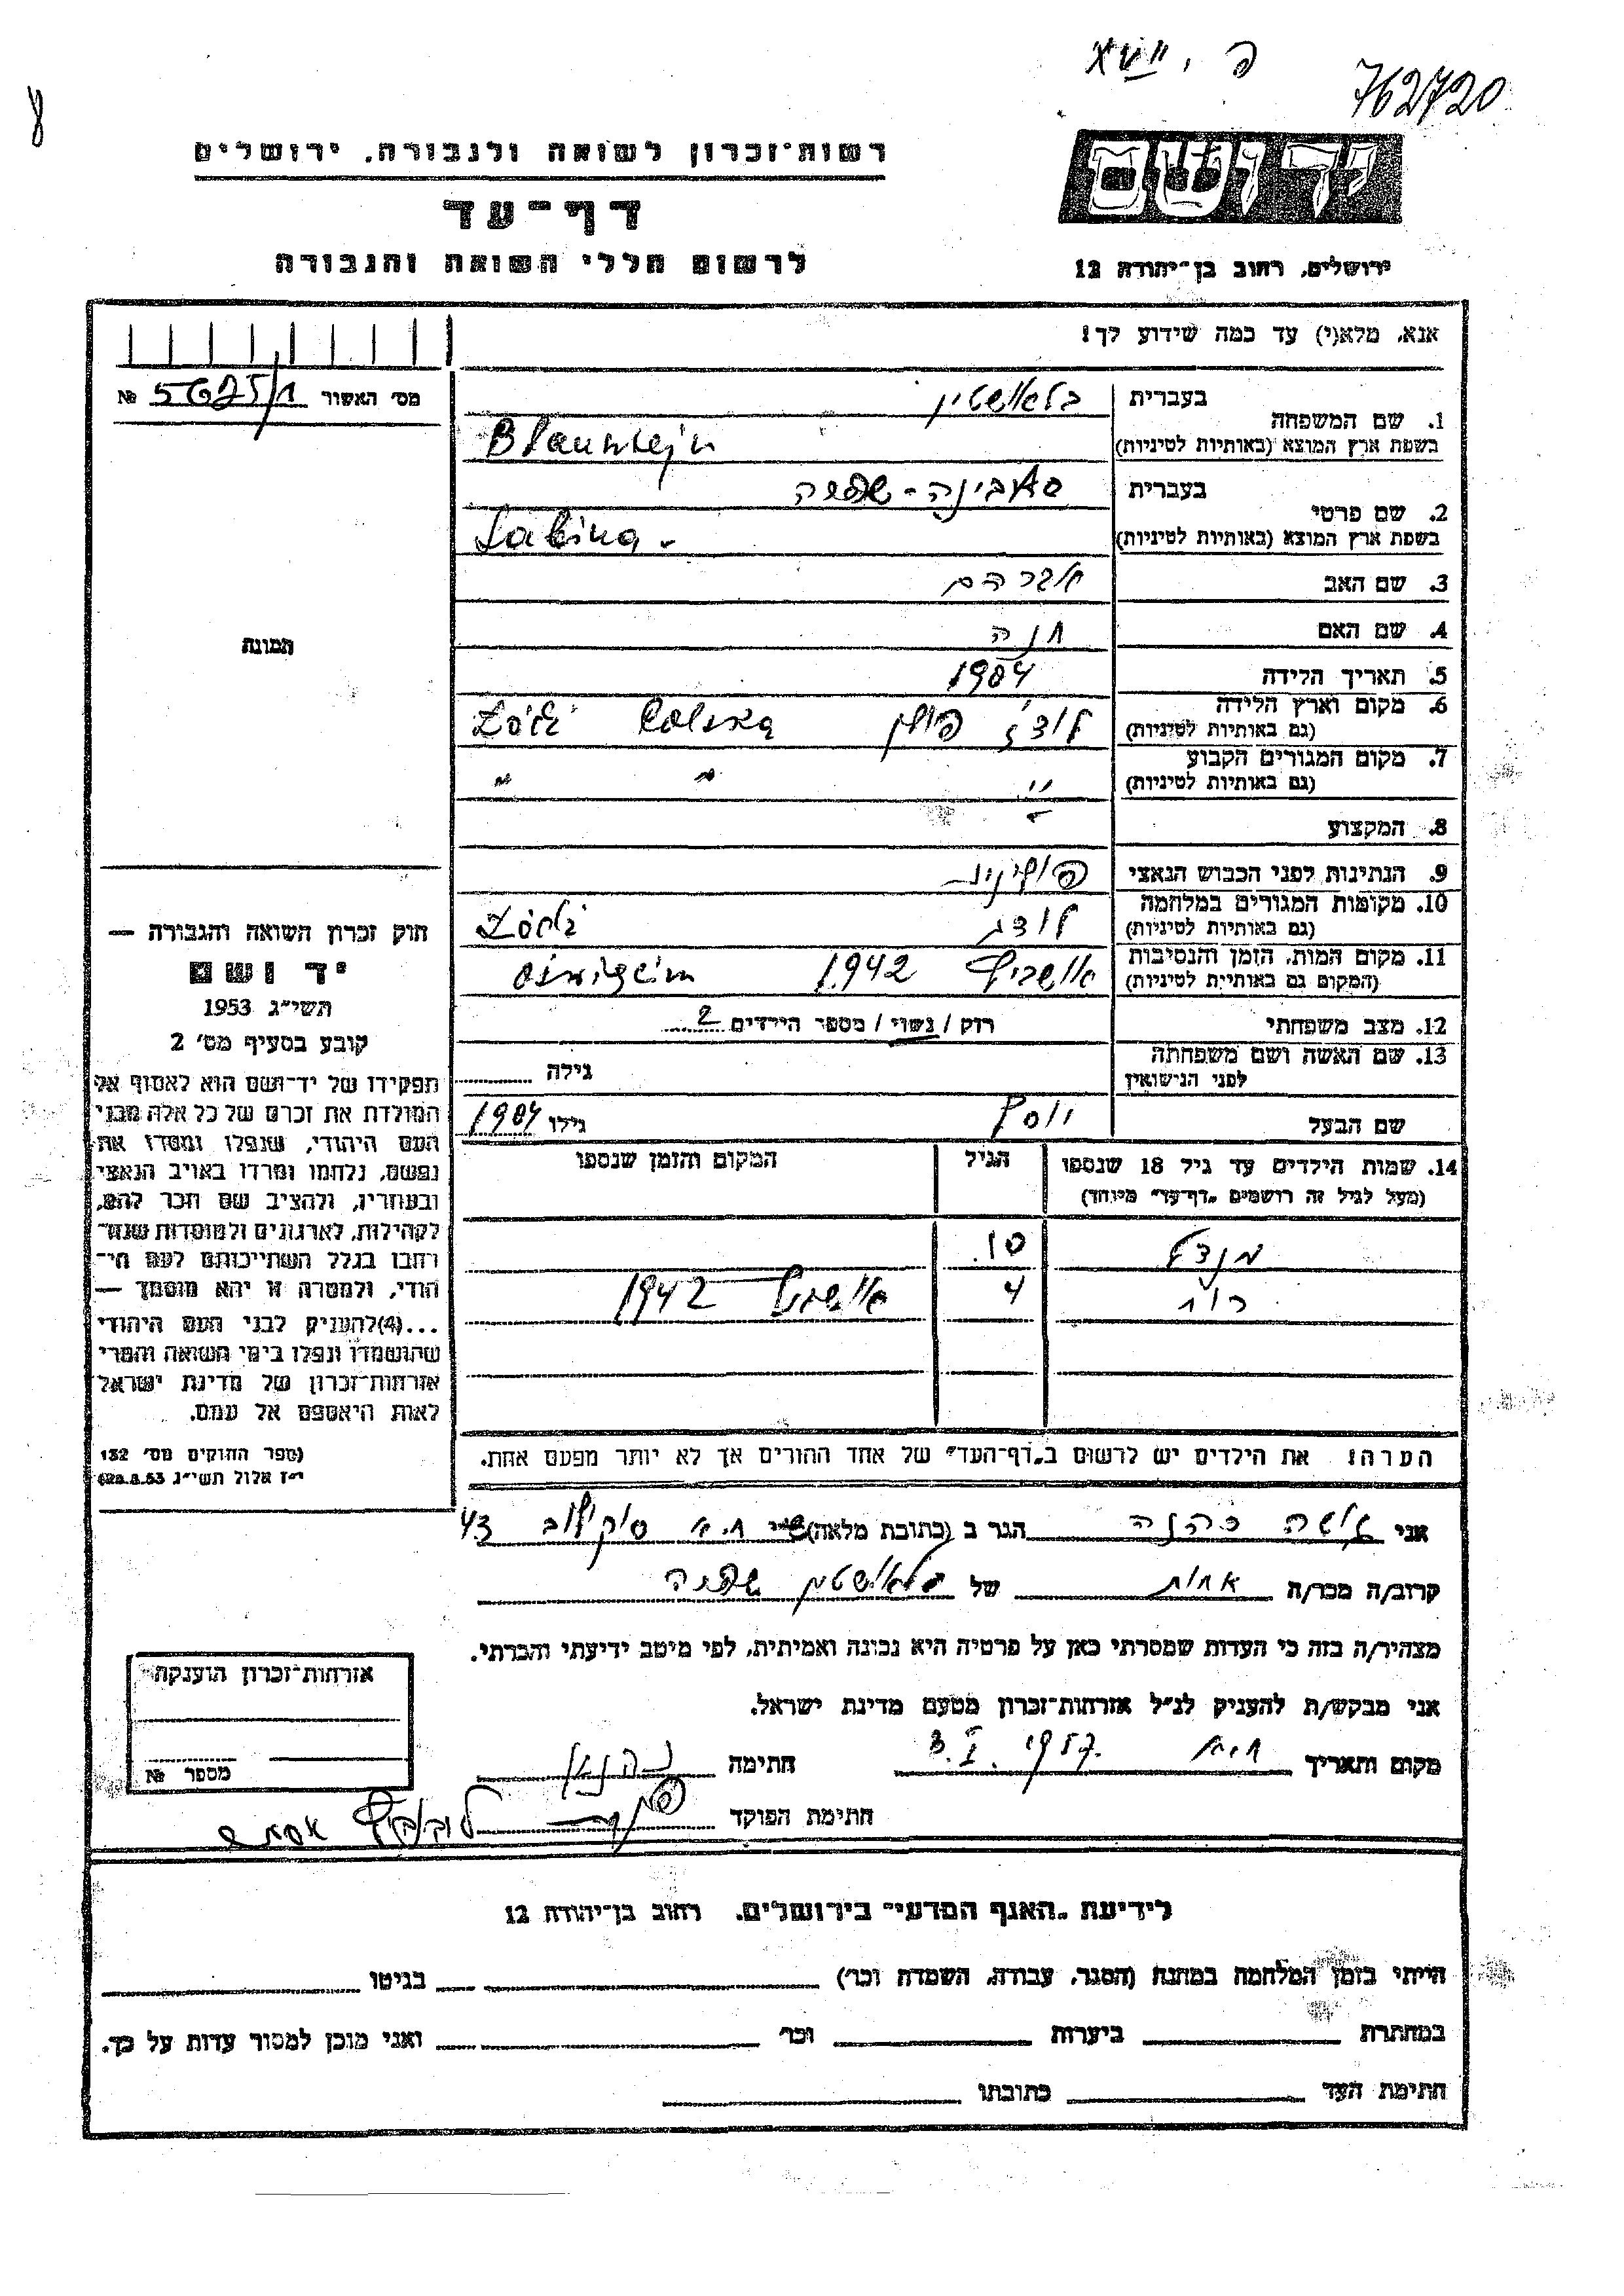 762720
רשות־זכרון לשואה ולגבורה, ירושלים
דף־עד
לרשום חללי השואה והגבורה
יד ושם
ירושלים, רחוב בן־יהודה 12
אנא, מלא(י) עד כמה שידוע לך!
מס׳ האשור № 5675/1
1. שם המשפחה
בעברית בלאושטין
בשפת ארץ המוצא (באותיות לטיניות) Blausztejn
2. שם פרטי
בעברית סאבינה-
בשפת ארץ המוצא (באותיות לטיניות) Sabina -
3. שם האב אברהם
4. שם האם חנה
5. תאריך הלידה 1904
6. מקום וארץ הלידה (גם באותיות לטיניות) לודז׳ פולין Polska Łódź
7. מקום המגורים הקבוע (גם באותיות לטיניות) " " "
8. המקצוע
9. הנתינות לפני הכבוש הנאצי פולנית
10. מקומות המגורים במלחמה (גם באותיות לטיניות) לודז Łódź
11. מקום המות, הזמן והנסיבות (המקום גם באותיות לטיניות) אושביץ 1942
12. מצב משפחתי רוק / נשוי / מספר הילדים 2
13. שם האשה ושם משפחתה לפני הנישואין גילה
שם הבעל יוסף גילו 1904
14. שמות הילדים עד גיל 18 שנספו (מעל לגיל זה רושמים „דף־עד" מיוחד) הגיל המקום והזמן שנספו
מנדל 10.
רות 4 אושביץ 1942
הערה: את הילדים יש לרשום ב„דף־העד" של אחד ההורים אך לא יותר מפעם אחת.
תמונה
חוק זכרון השואה והגבורה —
יד ושם
תשי״ג 1953
קובע בסעיף מס׳ 2
תפקידו של יד־ושם הוא לאסוף אל
המולדת את זכרם של כל אלה מבני
העם היהודי, שנפלו ומסרו את
נפשם, נלחמו ומרדו באויב הנאצי
ובעוזריו, ולהציב שם וזכר להם,
לקהילות, לארגונים ולמוסדות שנח־
רבו בגלל השתייכותם לעם הי־
הודי, ולמטרה זו יהא מוסמך —
...(4)להעניק לבני העם היהודי
שהושמדו ונפלו בימי השואה והמרי
אזרחות־זכרון של מדינת ישראל
לאות היאספם אל עמם.
(ספר החוקים מס׳ 132
י״ז אלול תשי״ג 28.8.53)
אני כהנה הגר ב (כתובת מלאה) ת.א סוקולוב 43
קרוב/ה מכר/ה אחות של בלאושטין
מצהיר/ה בזה כי העדות שמסרתי כאן על פרטיה היא נכונה ואמיתית, לפי מיטב ידיעתי והכרתי.
אני מבקש/ת להעניק לנ״ל אזרחות־זכרון מטעם מדינת ישראל.
מקום ותאריך 3.I.1957 חתימה
חתימת הפוקד
אזרחות־זכרון הוענקה
מספר №
לידיעת „האגף המדעי" בירושלים. רחוב בן־יהודה 12
הייתי בזמן המלחמה במחנה (הסגר, עבודה, השמדה וכו׳) בגיטו
במחתרת ביערות וכו׳ ואני מוכן למסור עדות על כך.
חתימת העד כתובתו